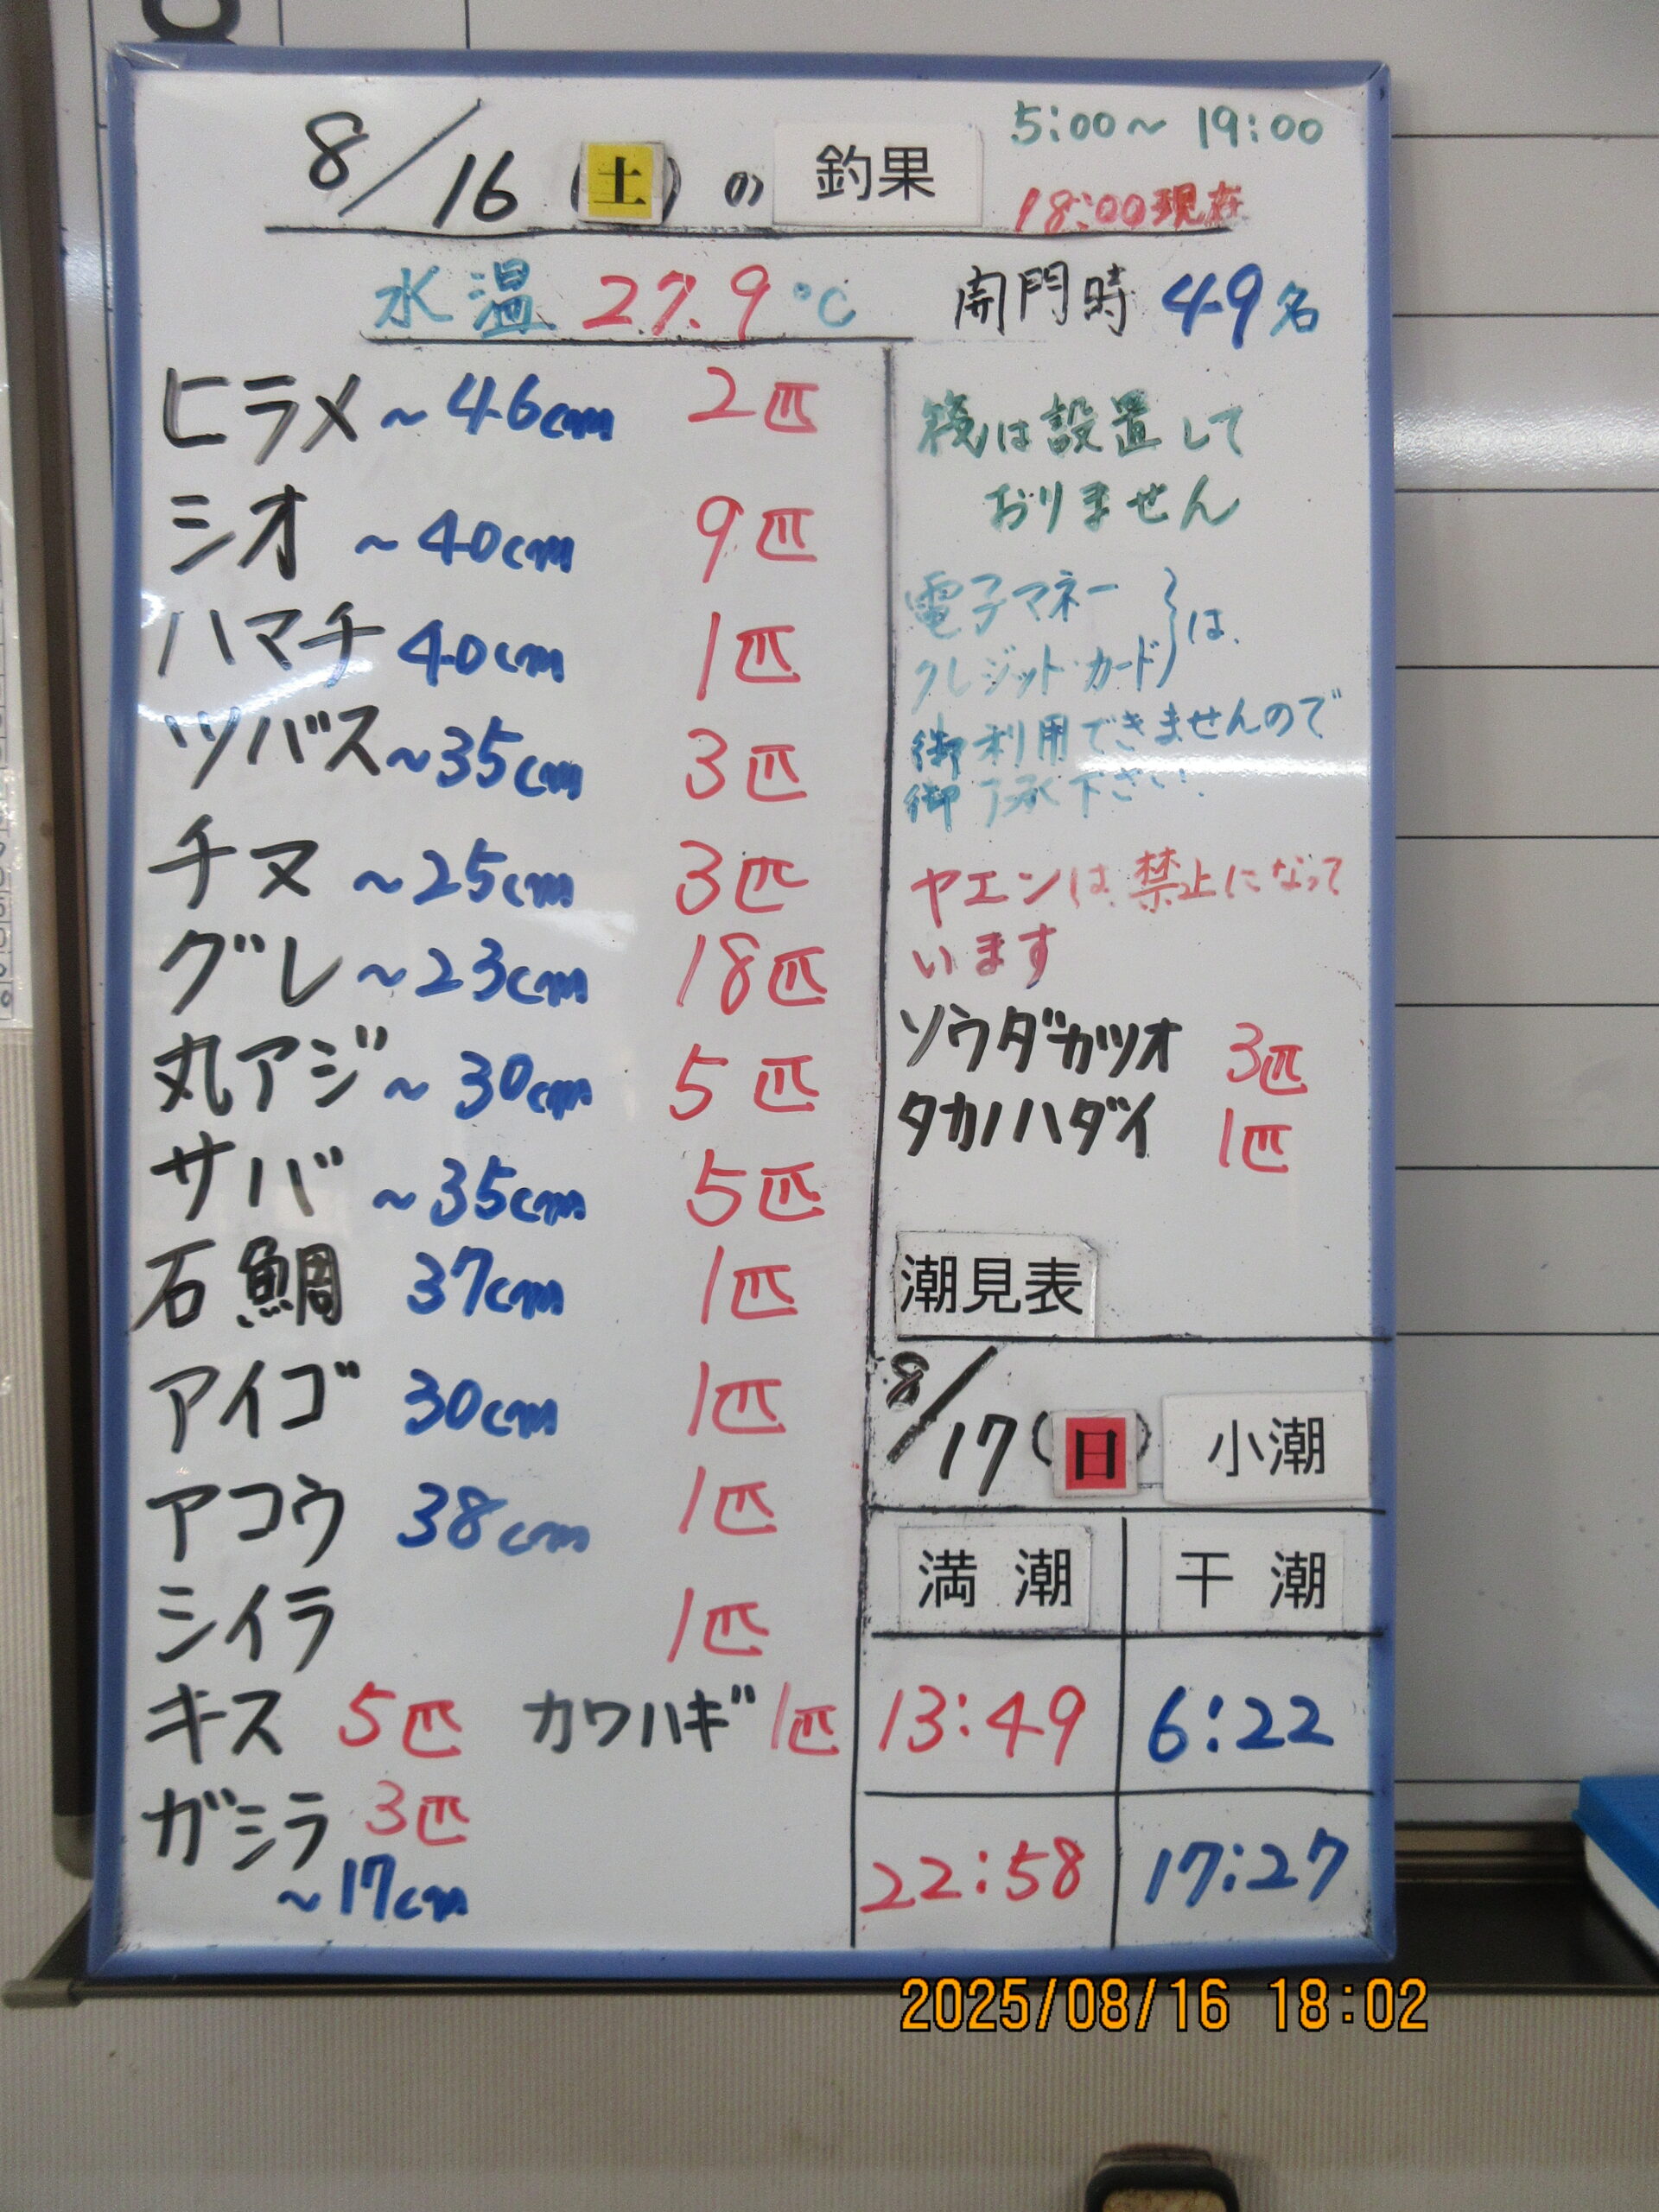 8/16(土)の釣果
5:00~19:00
18:00現在
水温 27.9℃
開門時 49名
ヒラメ ~46cm 2匹
シオ ~40cm 9匹
ハマチ 40cm 1匹
ツバス ~35cm 3匹
チヌ ~25cm 3匹
グレ ~23cm 18匹
丸アジ ~30cm 5匹
サバ ~35cm 5匹
石鯛 37cm 1匹
アイゴ 30cm 1匹
アコウ 38cm 1匹
シイラ 1匹
キス 5匹 カワハギ 1匹
ガシラ 3匹
~17cm
筏は設置して
おりません
電子マネー
クレジット・カード}は、
御利用できませんので
御了承下さい!
ヤエンは禁止になって
います
ソウダガツオ 3匹
タカノハダイ 1匹
潮見表
8/17(日) 小潮
満潮 干潮
13:49 6:22
22:58 17:27
2025/08/16 18:02